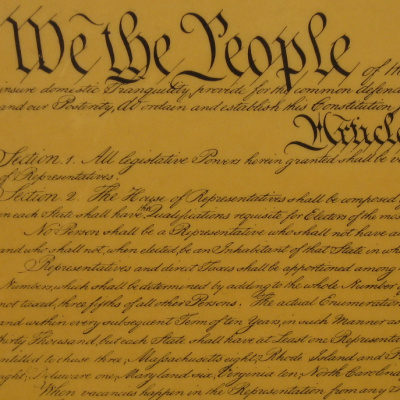 We the People of the
insure domestic Tranquility, provide for the common defence
and our Posterity, do ordain and establish this Constitution
Article
Section 1. All legislative Powers herein granted shall be
of Representatives.
Section 2. The House of Representatives shall be composed
in each State shall have the Qualifications requisite for Electors of the most
No Person shall be a Representative who shall not have
and who shall not, when elected, be an Inhabitant of that State in
Representatives and direct Taxes shall be apportioned among
Numbers, which shall be determined by adding to the whole Number
not taxed, three fifths of all other Persons. The actual Enumeration
and within every subsequent Term of ten Years, in such Manner as
thirty Thousand, but each State shall have at Least one
entitled to chuse three, Massachusetts eight, Rhode Island and
eight, Delaware one, Maryland six, Virginia ten, North Carolina
When vacancies happen in the Representation from any